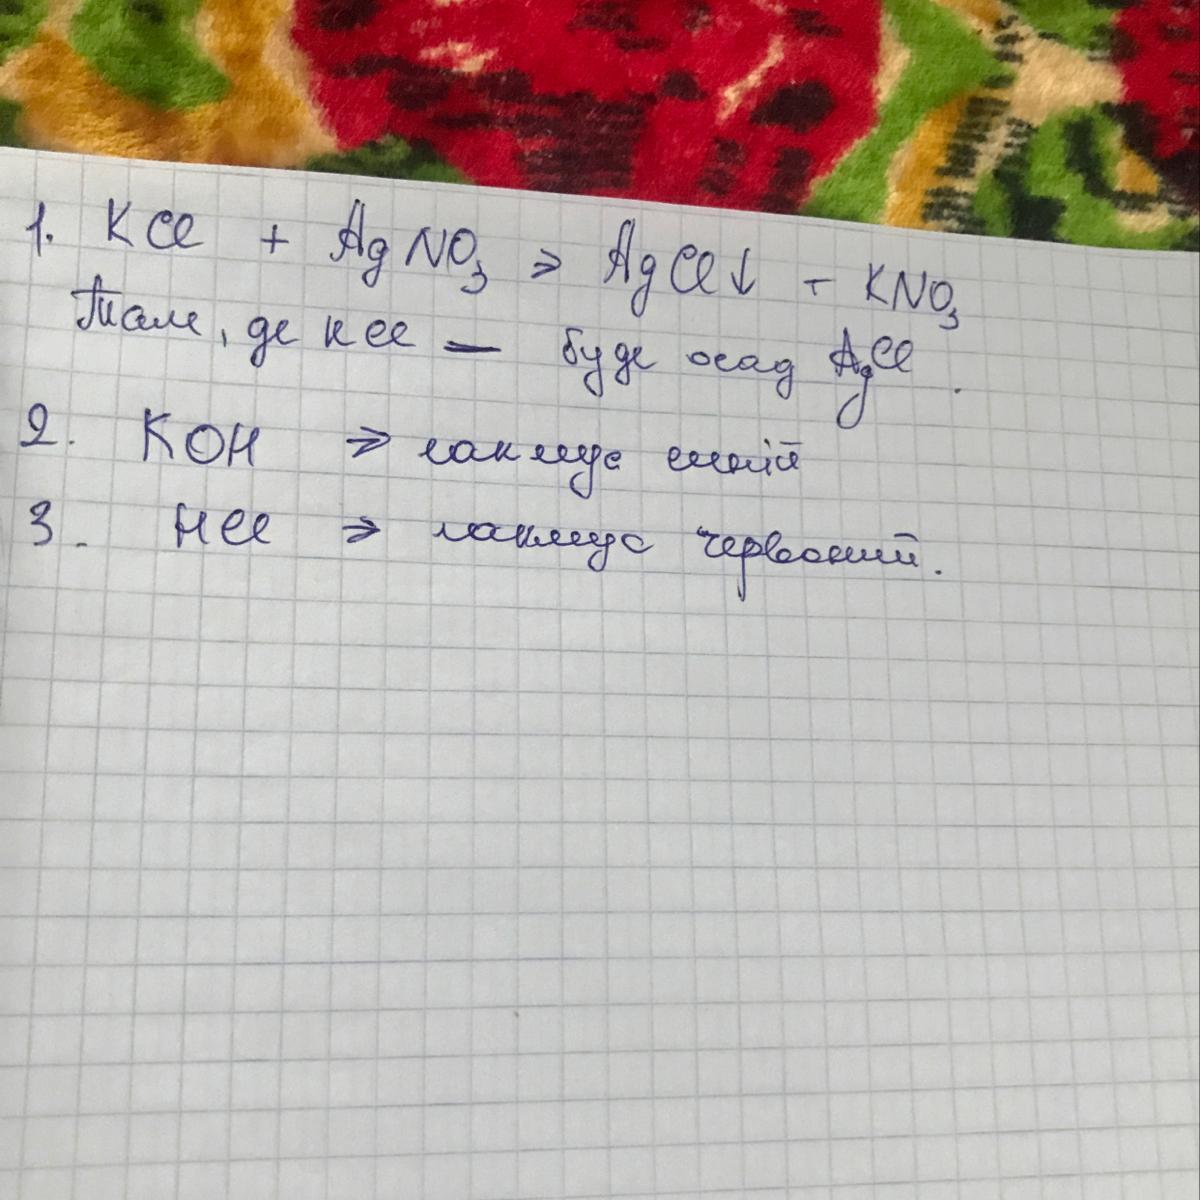 1. KCl + AgNO₃ → AgCl↓ + KNO₃
Там, де KCl — буде осад AgCl.
2. KOH → лакмус синій
3. HCl → лакмус червоний.